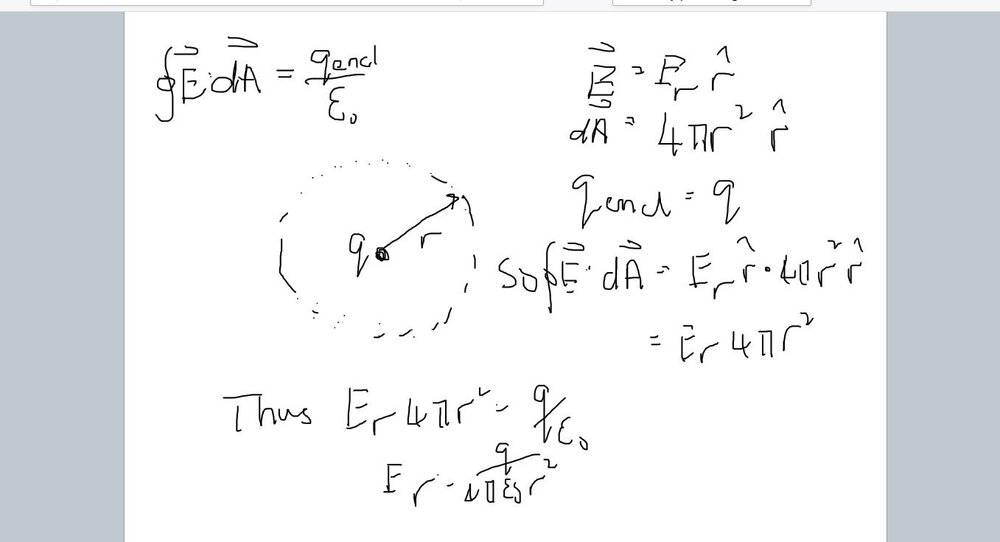 ∮E⃗·dA⃗ = qencl/ε₀
E⃗ = Eᵣ r̂
dA⃗ = 4πr² r̂
qencl = q
q
r
So ∮E⃗·dA⃗ = Eᵣ r̂ · 4πr² r̂
= Eᵣ 4πr²
Thus Eᵣ 4πr² = q/ε₀
Eᵣ = q/4πε₀r²